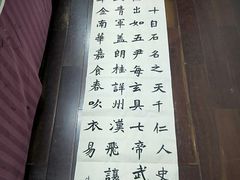 十自石名之天千仁人史
出如五尹每玄具七帝武
青軍蓋朗桂詳州漢飛讓
金南華嘉食春吹衣易